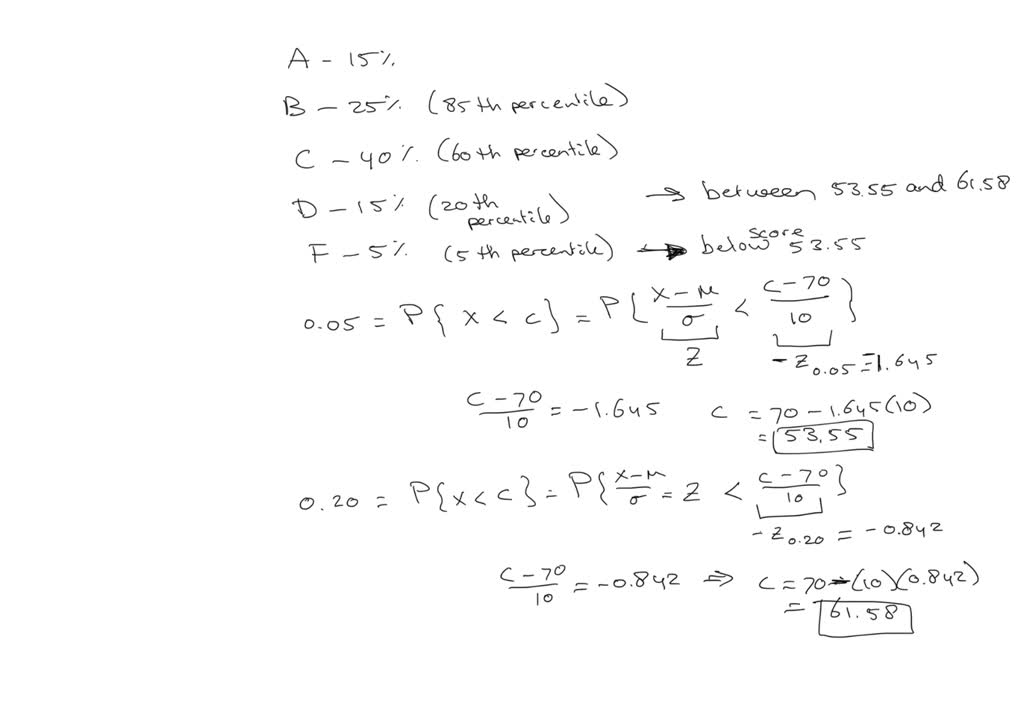 A - 15%
B - 25% (85th percentile)
C - 40% (60th percentile)
D - 15% (20th percentile) → between 53.55 and 61.58
F - 5% (5th percentile) → below score 53.55
0.05 = P{ X < c } = P{ (X-μ)/σ < (c-70)/10 }
Z
-Z0.05 = -1.645
(c-70)/10 = -1.645 c = 70 - 1.645(10)
= 53.55
0.20 = P{X < c} = P{ (X-μ)/σ = Z < (c-70)/10 }
-Z0.20 = -0.842
(c-70)/10 = -0.842 ⇒ c = 70 - (10)(0.842)
= 61.58